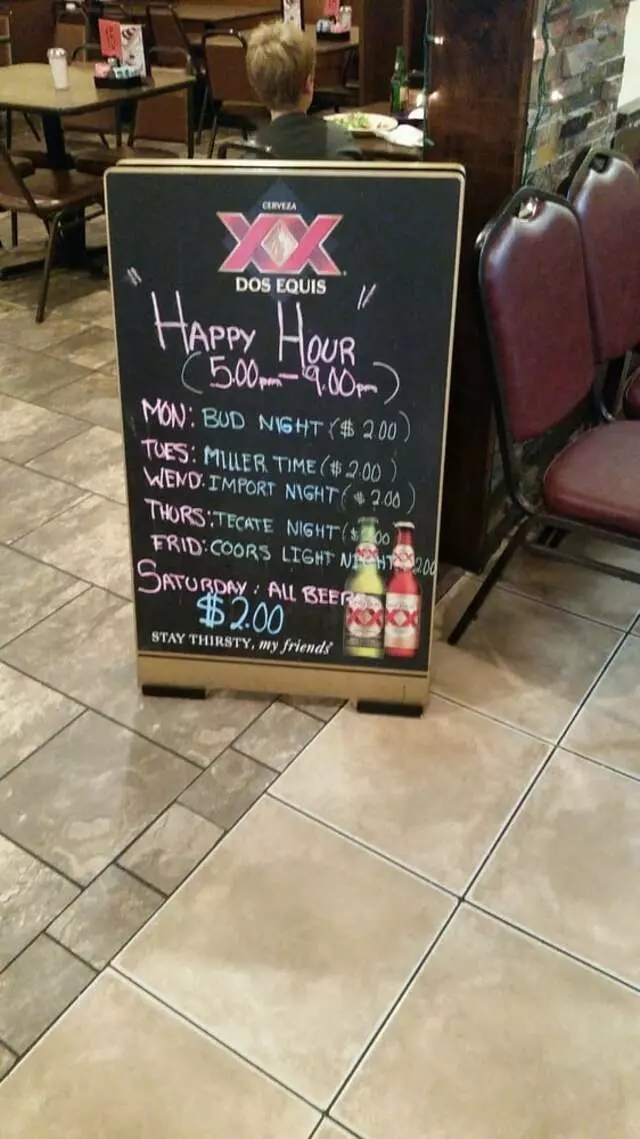 CERVEZA
XX
DOS EQUIS
"HAPPY HOUR"
(5:00pm - 9:00pm)
MON: BUD NIGHT ($ 2.00)
TUES: MILLER TIME ($ 2.00)
WEND: IMPORT NIGHT ($ 2.00)
THORS: TECATE NIGHT ($ 2.00
FRID: COORS LIGHT NIGHT 2.00
SATURDAY: ALL BEER
$2.00
XX XX
STAY THIRSTY, my friends